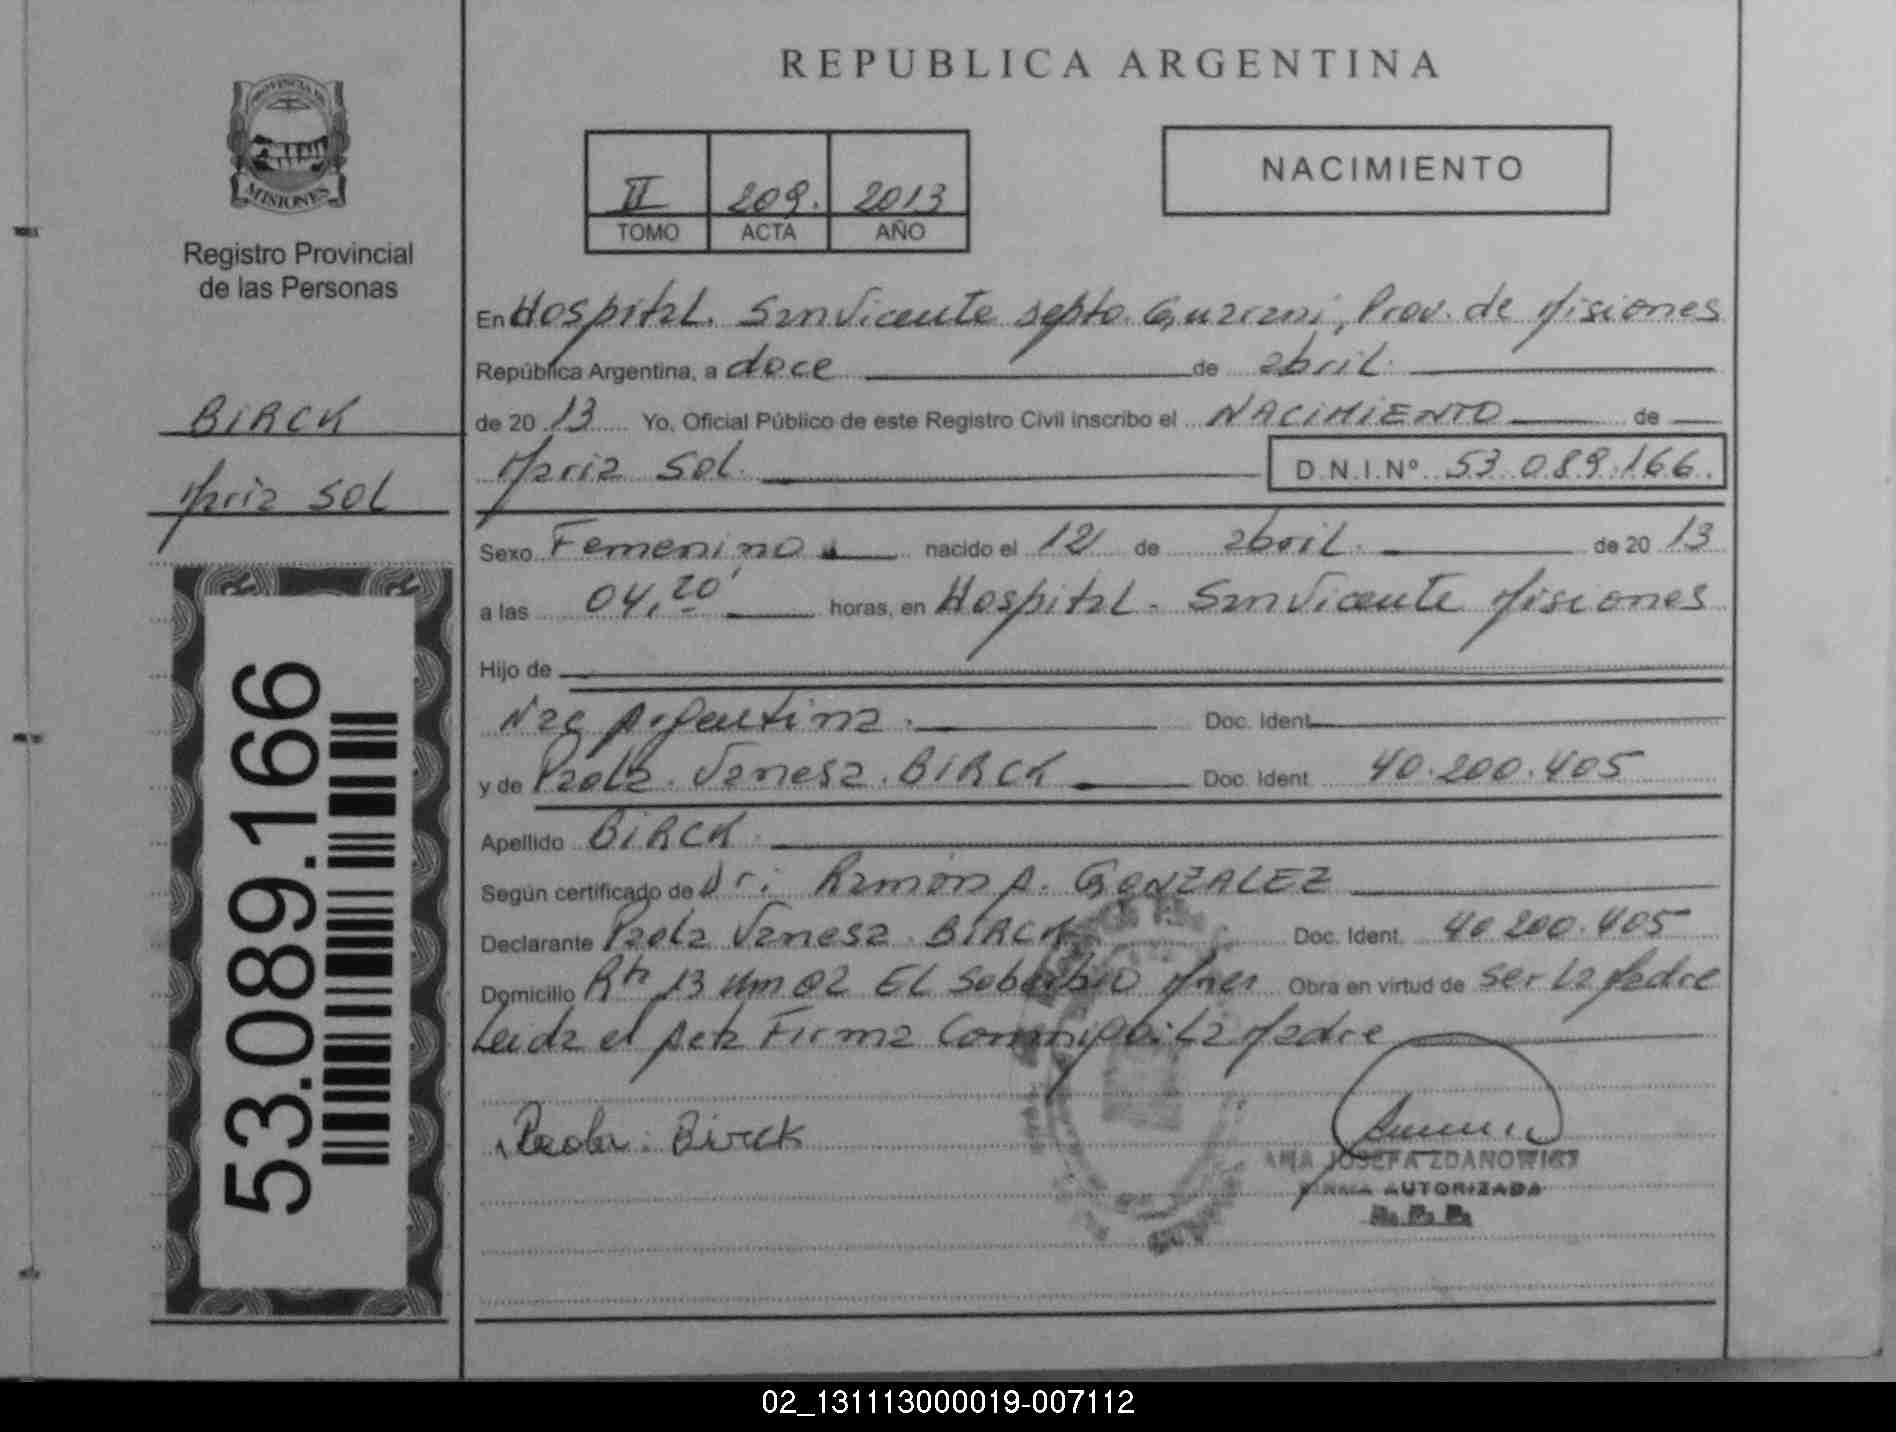 REPUBLICA ARGENTINA
PROVINCIA DE
MISIONES
Registro Provincial
de las Personas
II 209. 2013
TOMO ACTA AÑO
NACIMIENTO
BIRCK
Maria SOL
53.089.166
En Hospital. San Vicente Depto. Guarani, Prov. de Misiones
República Argentina, a doce de abril.
de 20 13 Yo, Oficial Público de este Registro Civil inscribo el NACIMIENTO de
Maria SOL. D.N.I.Nº 53.089.166.
Sexo Femenino nacido el 12 de abril. de 20 13
a las 04,20' horas, en Hospital. San Vicente Misiones
Hijo de
Nac Argentina. Doc. Ident.
y de Paola. Vanesa. BIRCK Doc. Ident. 40.200.405
Apellido BIRCK.
Según certificado de Dr: Ramon A. GONZALEZ
Declarante Paola Vanesa. BIRCK Doc. Ident. 40.200.405
Domicilio 13 Km 02 EL Soberbio Mnes Obra en virtud de ser La Madre
Leida el Acta Firma Conmigo: La Madre
Paola. Birck
ANA JOSEFA ZDANOWICZ
FIRMA AUTORIZADA
02_131113000019-007112